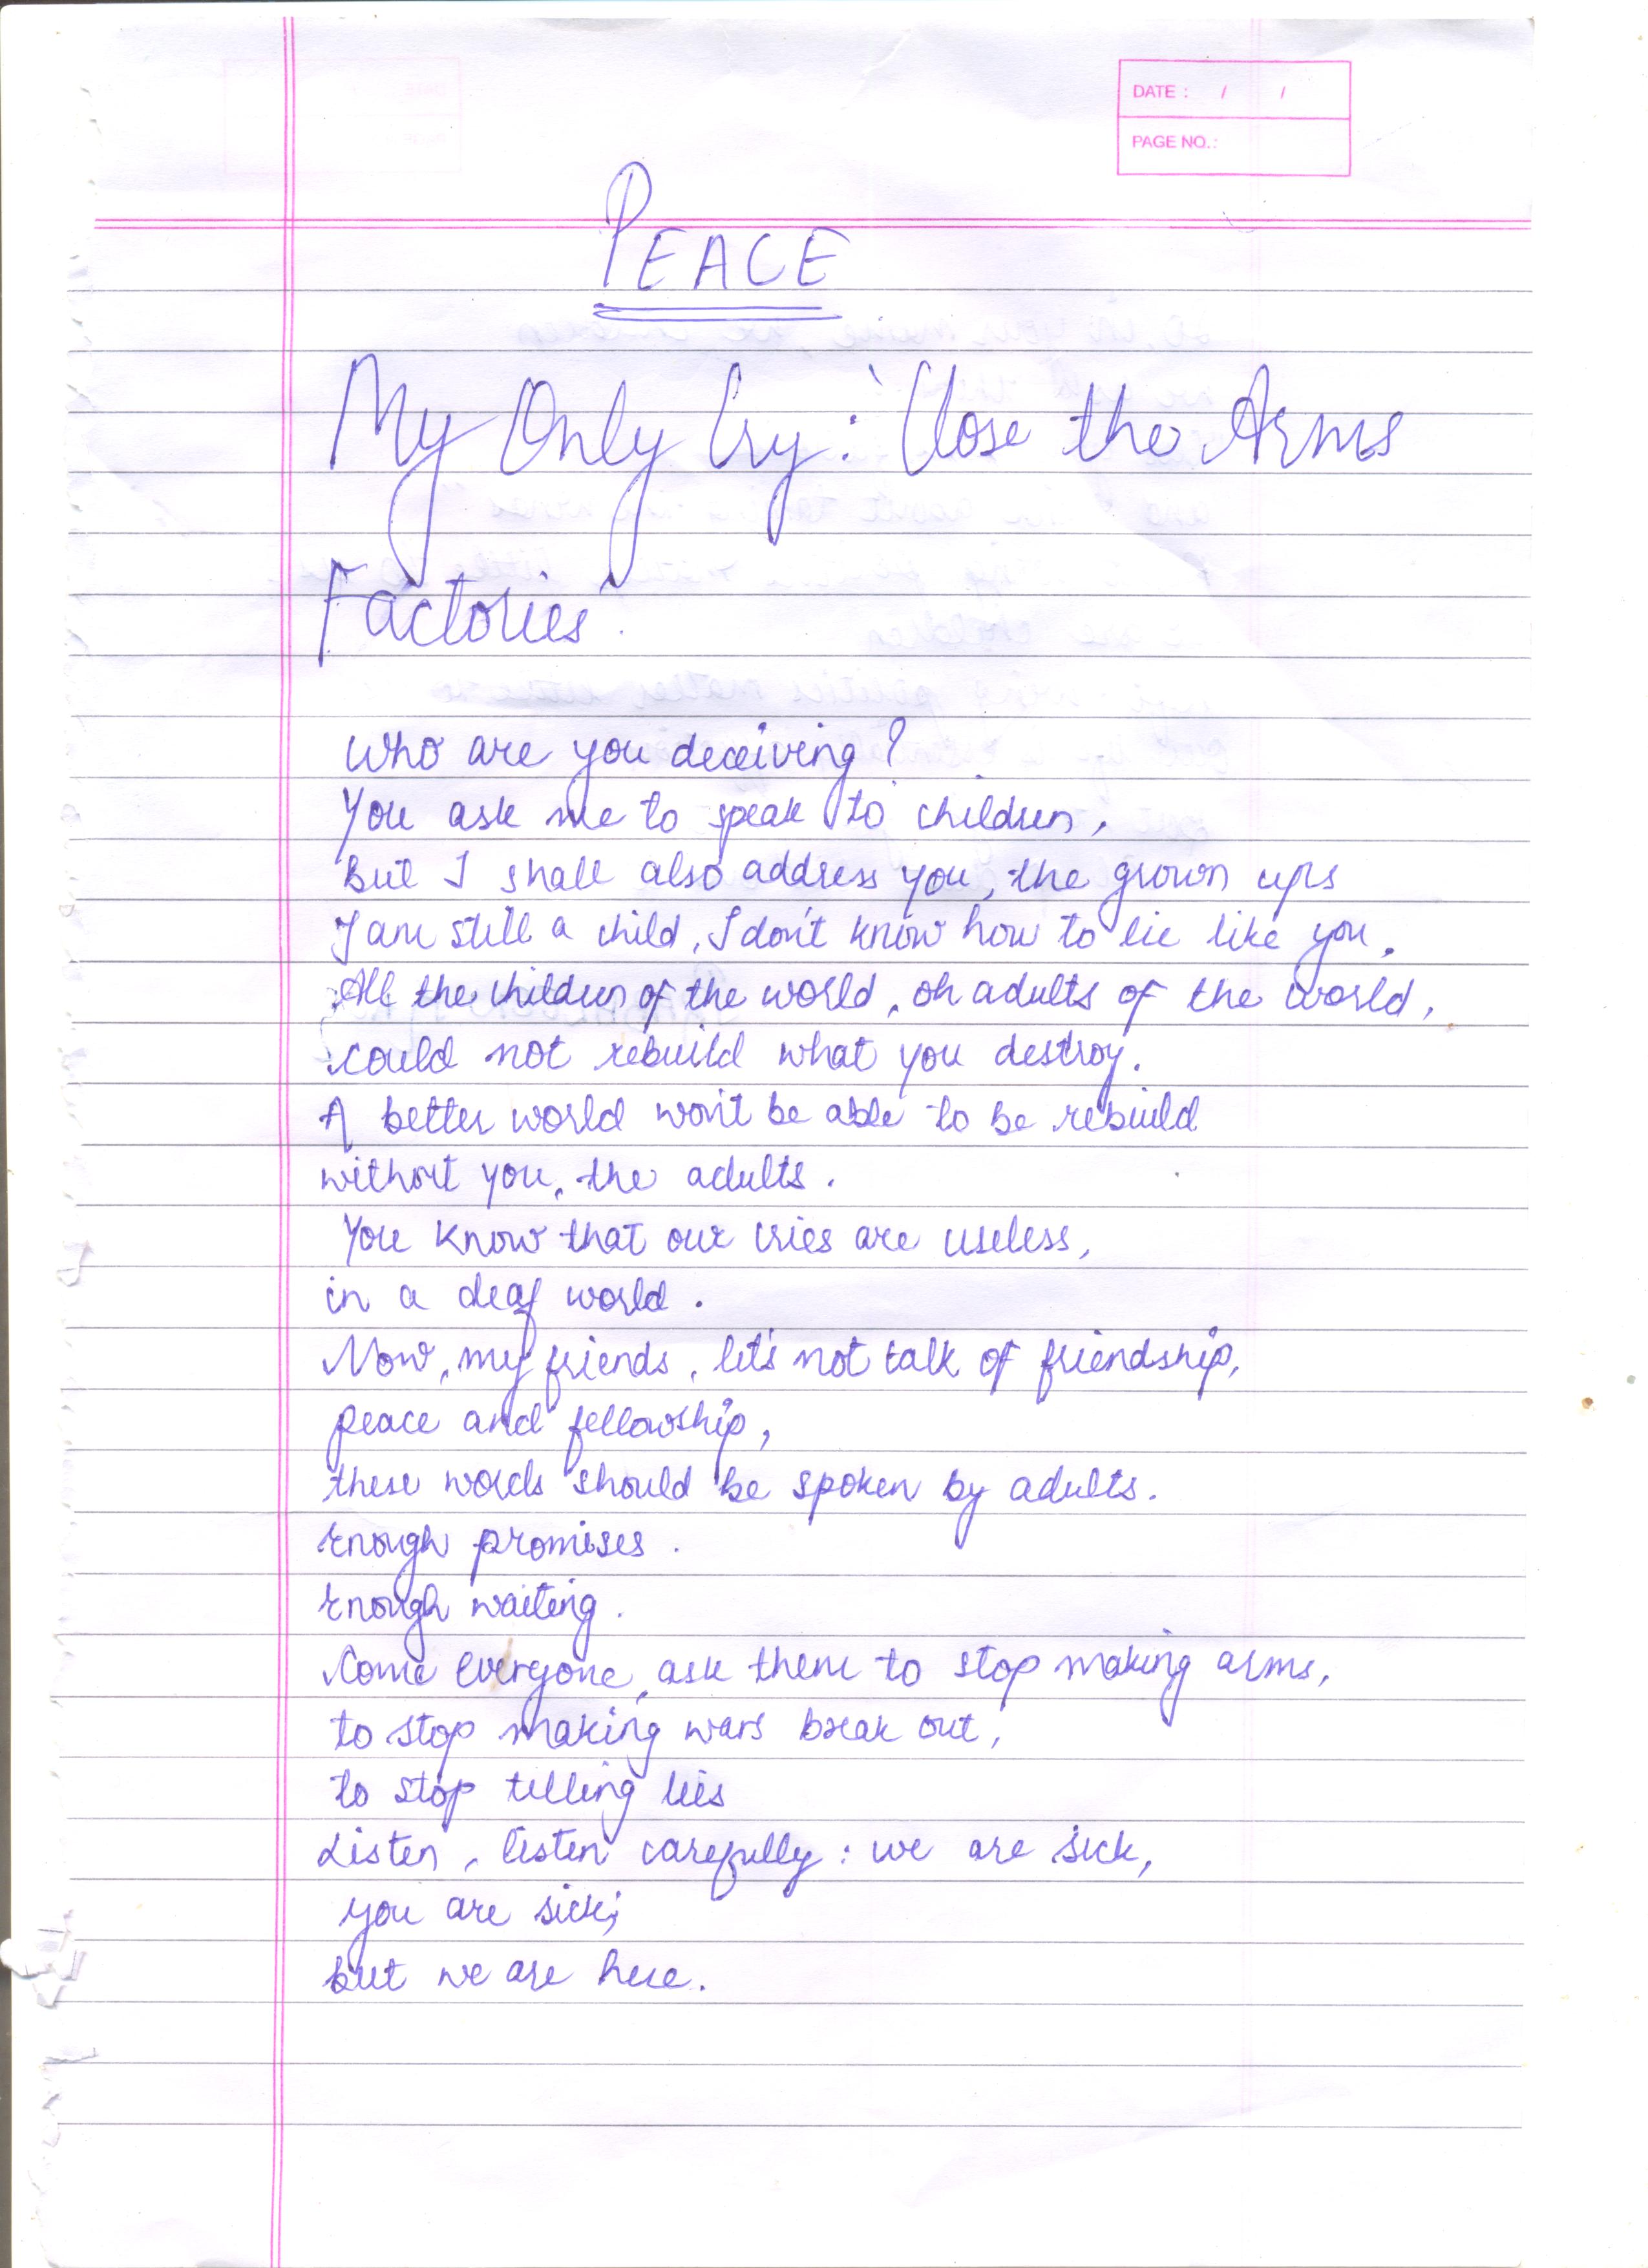 DATE : / /
PAGE NO.:
PEACE
My Only Cry : 'Close the Arms
Factories'.
Who are you deceiving?
You ask me to speak to children,
But I shall also address you, the grown ups
I am still a child, I don't know how to lie like you.
All the children of the world, oh adults of the world,
could not rebuild what you destroy.
A better world won't be able to be rebuild
without you, the adults.
You know that our cries are useless,
in a deaf world.
Now, my friends, let's not talk of friendship,
peace and fellowship,
these words should be spoken by adults.
Enough promises.
Enough waiting.
Come everyone, ask them to stop making arms,
to stop making wars break out,
to stop telling lies
Listen, listen carefully : we are sick,
you are sick;
but we are here.